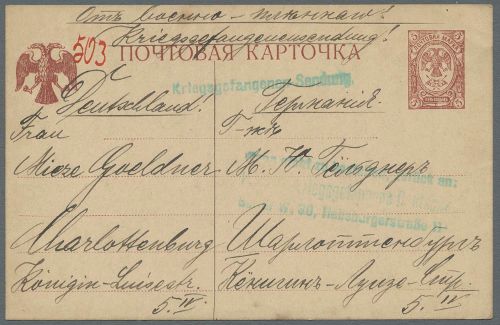 Отъ военно-плѣннаго!
Kriegsgefangenensendung!
503
ПОЧТОВАЯ КАРТОЧКА
ПОЧТОВАЯ МАРКА
5
5
Kriegsgefangenen Sendung.
Deutschland!
Германія.
Frau
Г-жѣ
Mieze Goeldner
М. Ю. Гёльднеръ
an:
W. 30, Habsburgerstraße
Charlottenburg
Шарлоттенбургъ
Königin-Luisestr.
Кёнигинъ-Луизе-Стр.
5. IV
5. IV